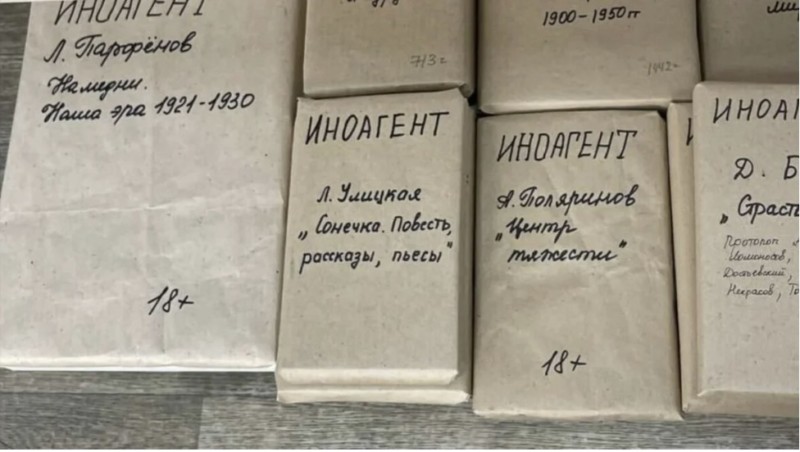 ИНОАГЕНТ
Л. Парфёнов
Намедни.
Наша эра 1921-1930
18+
713г
1900-1950гг
1442г
ИНОАГЕНТ
Л. Улицкая
„Сонечка. Повесть,
рассказы, пьесы"
ИНОАГЕНТ
А. Поляринов
„Центр
тяжести"
18+
ИНОАГ
Д. Б
„Страст
Протопоп
Ломоносов,
Достоевский,
Некрасов, То